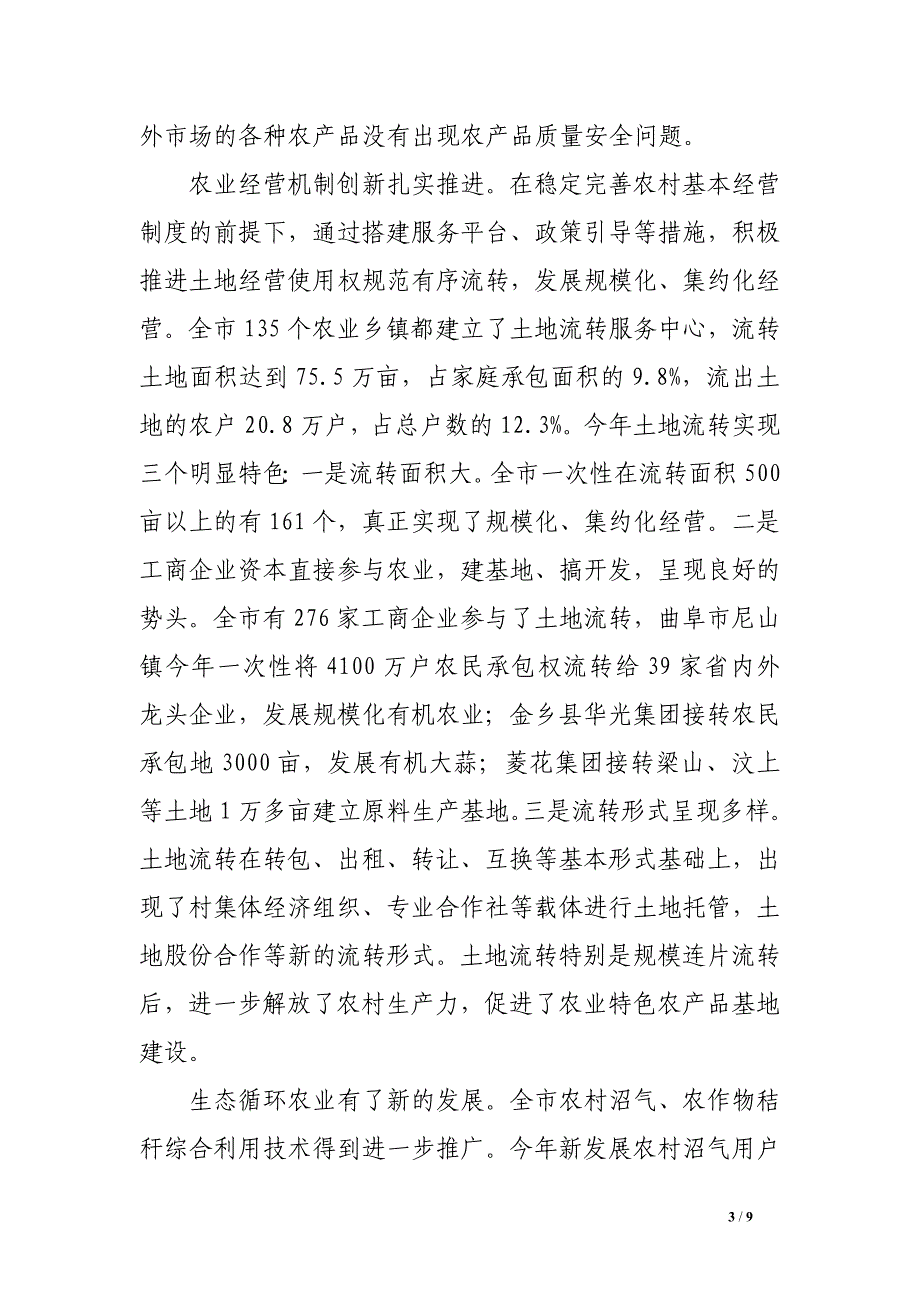 外市场的各种农产品没有出现农产品质量安全问题。
农业经营机制创新扎实推进。在稳定完善农村基本经营
制度的前提下，通过搭建服务平台、政策引导等措施，积极
推进土地经营使用权规范有序流转，发展规模化、集约化经
营。全市 135 个农业乡镇都建立了土地流转服务中心，流转
土地面积达到 75.5 万亩，占家庭承包面积的 9.8%，流出土
地的农户 20.8 万户，占总户数的 12.3%。今年土地流转实现
三个明显特色：一是流转面积大。全市一次性在流转面积 500
亩以上的有 161 个，真正实现了规模化、集约化经营。二是
工商企业资本直接参与农业，建基地、搞开发，呈现良好的
势头。全市有 276 家工商企业参与了土地流转，曲阜市尼山
镇今年一次性将 4100 万户农民承包权流转给 39 家省内外
龙头企业，发展规模化有机农业；金乡县华光集团接转农民
承包地 3000 亩，发展有机大蒜；菱花集团接转梁山、汶上
等土地 1 万多亩建立原料生产基地。三是流转形式呈现多样。
土地流转在转包、出租、转让、互换等基本形式基础上，出
现了村集体经济组织、专业合作社等载体进行土地托管，土
地股份合作等新的流转形式。土地流转特别是规模连片流转
后，进一步解放了农村生产力，促进了农业特色农产品基地
建设。
生态循环农业有了新的发展。全市农村沼气、农作物秸
秆综合利用技术得到进一步推广。今年新发展农村沼气用户
3 / 9